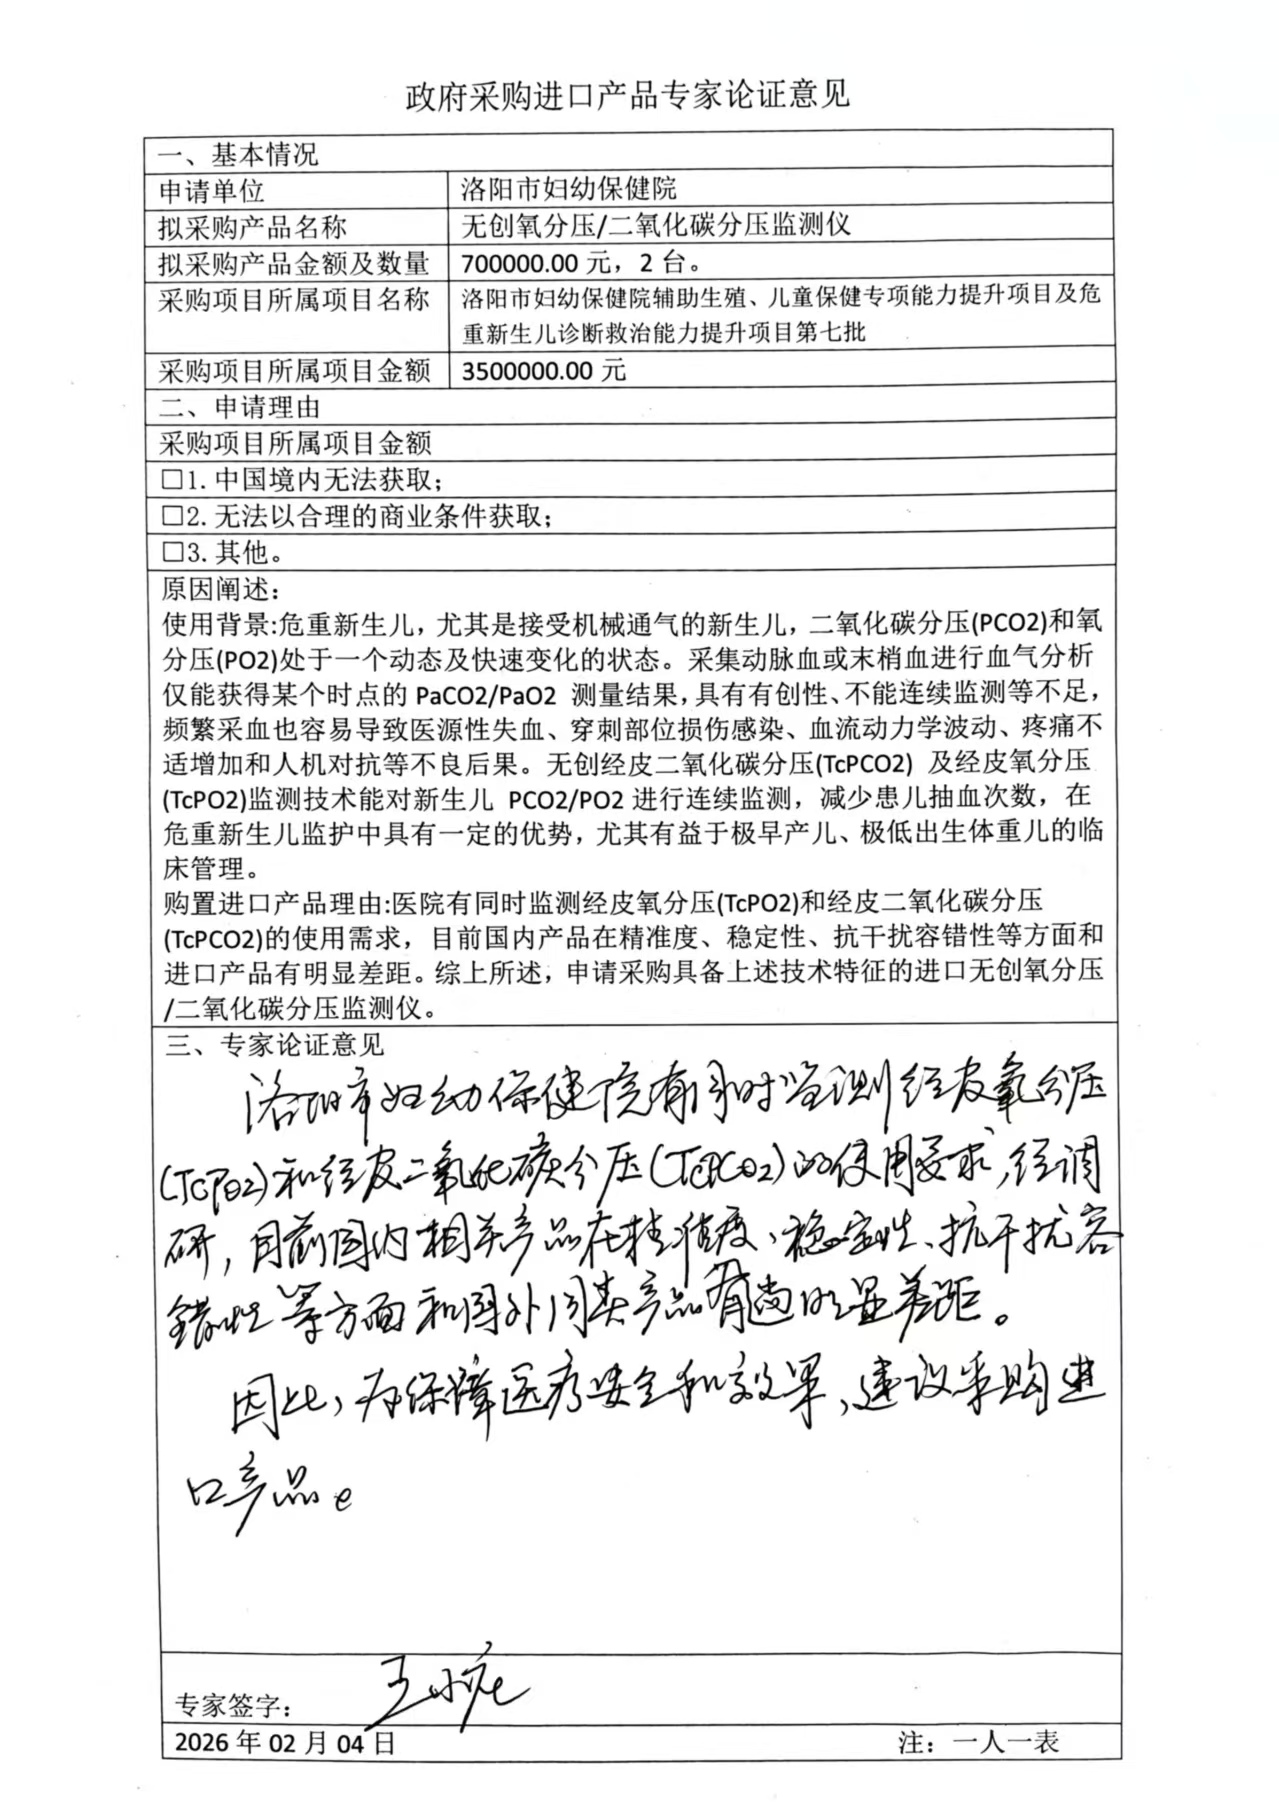 政府采购进口产品专家论证意见
一、基本情况
申请单位 洛阳市妇幼保健院
拟采购产品名称 无创氧分压/二氧化碳分压监测仪
拟采购产品金额及数量 700000.00 元，2 台。
采购项目所属项目名称 洛阳市妇幼保健院辅助生殖、儿童保健专项能力提升项目及危
重新生儿诊断救治能力提升项目第七批
采购项目所属项目金额 3500000.00 元
二、申请理由
采购项目所属项目金额
□1. 中国境内无法获取；
□2. 无法以合理的商业条件获取；
□3. 其他。
原因阐述：
使用背景:危重新生儿，尤其是接受机械通气的新生儿，二氧化碳分压(PCO2)和氧
分压(PO2)处于一个动态及快速变化的状态。采集动脉血或末梢血进行血气分析
仅能获得某个时点的 PaCO2/PaO2 测量结果，具有有创性、不能连续监测等不足，
频繁采血也容易导致医源性失血、穿刺部位损伤感染、血流动力学波动、疼痛不
适增加和人机对抗等不良后果。无创经皮二氧化碳分压(TcPCO2) 及经皮氧分压
(TcPO2)监测技术能对新生儿 PCO2/PO2 进行连续监测，减少患儿抽血次数，在
危重新生儿监护中具有一定的优势，尤其有益于极早产儿、极低出生体重儿的临
床管理。
购置进口产品理由:医院有同时监测经皮氧分压(TcPO2)和经皮二氧化碳分压
(TcPCO2)的使用需求，目前国内产品在精准度、稳定性、抗干扰容错性等方面和
进口产品有明显差距。综上所述，申请采购具备上述技术特征的进口无创氧分压
/二氧化碳分压监测仪。
三、专家论证意见
洛阳市妇幼保健院有同时监测经皮氧分压
(TcPO2)和经皮二氧化碳分压(TcPCO2)的使用要求，经调
研，目前国内相关产品在精准度、稳定性、抗干扰容
错性等方面和国外同类产品有尚明显差距。
因此，为保障医疗安全和效果，建议采购进
口产品。
专家签字： 王
2026 年 02 月 04 日 注：一人一表